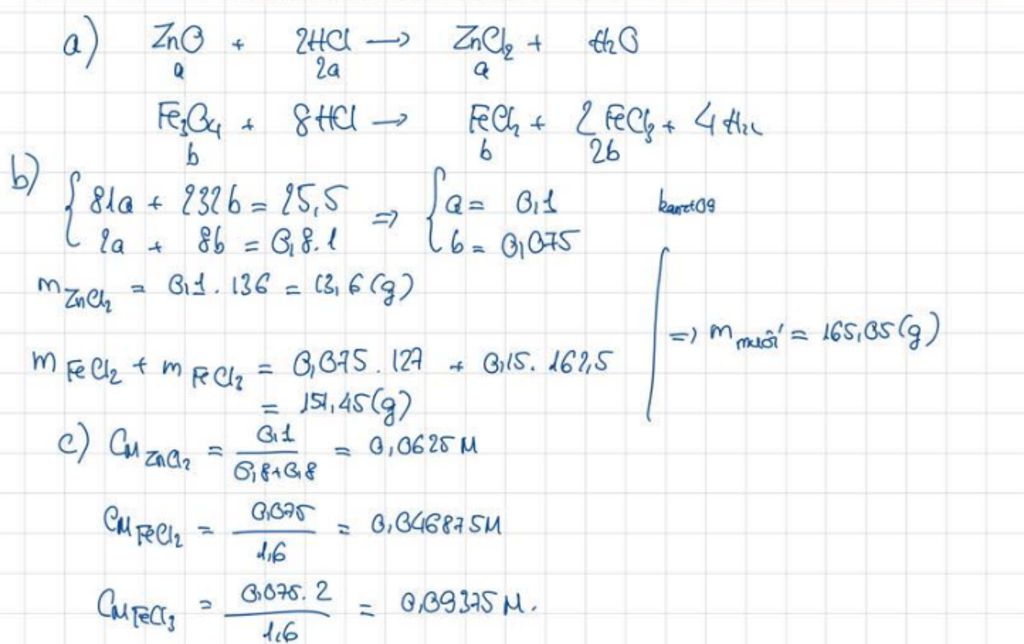 a) ZnO + 2HCl → ZnCl₂ + H₂O
a 2a a
Fe₃O₄ + 8HCl → FeCl₂ + 2FeCl₃ + 4H₂
b b 2b
b) { 81a + 232b = 25,5 ⇒ { a = 0,1
2a + 8b = 0,8.1 b = 0,075
m ZnCl₂ = 0,1 . 136 = 13,6 (g)
m FeCl₂ + m FeCl₂ = 0,075 . 127 + 0,15 . 162,5
= 151,45 (g)
⇒ m muối = 165,05 (g)
c) CM ZnCl₂ = 0,1 / 0,8+0,8 = 0,0625 M
CM FeCl₂ = 0,075 / 1,6 = 0,046875 M
CM FeCl₃ = 0,075 . 2 / 1,6 = 0,09375 M.